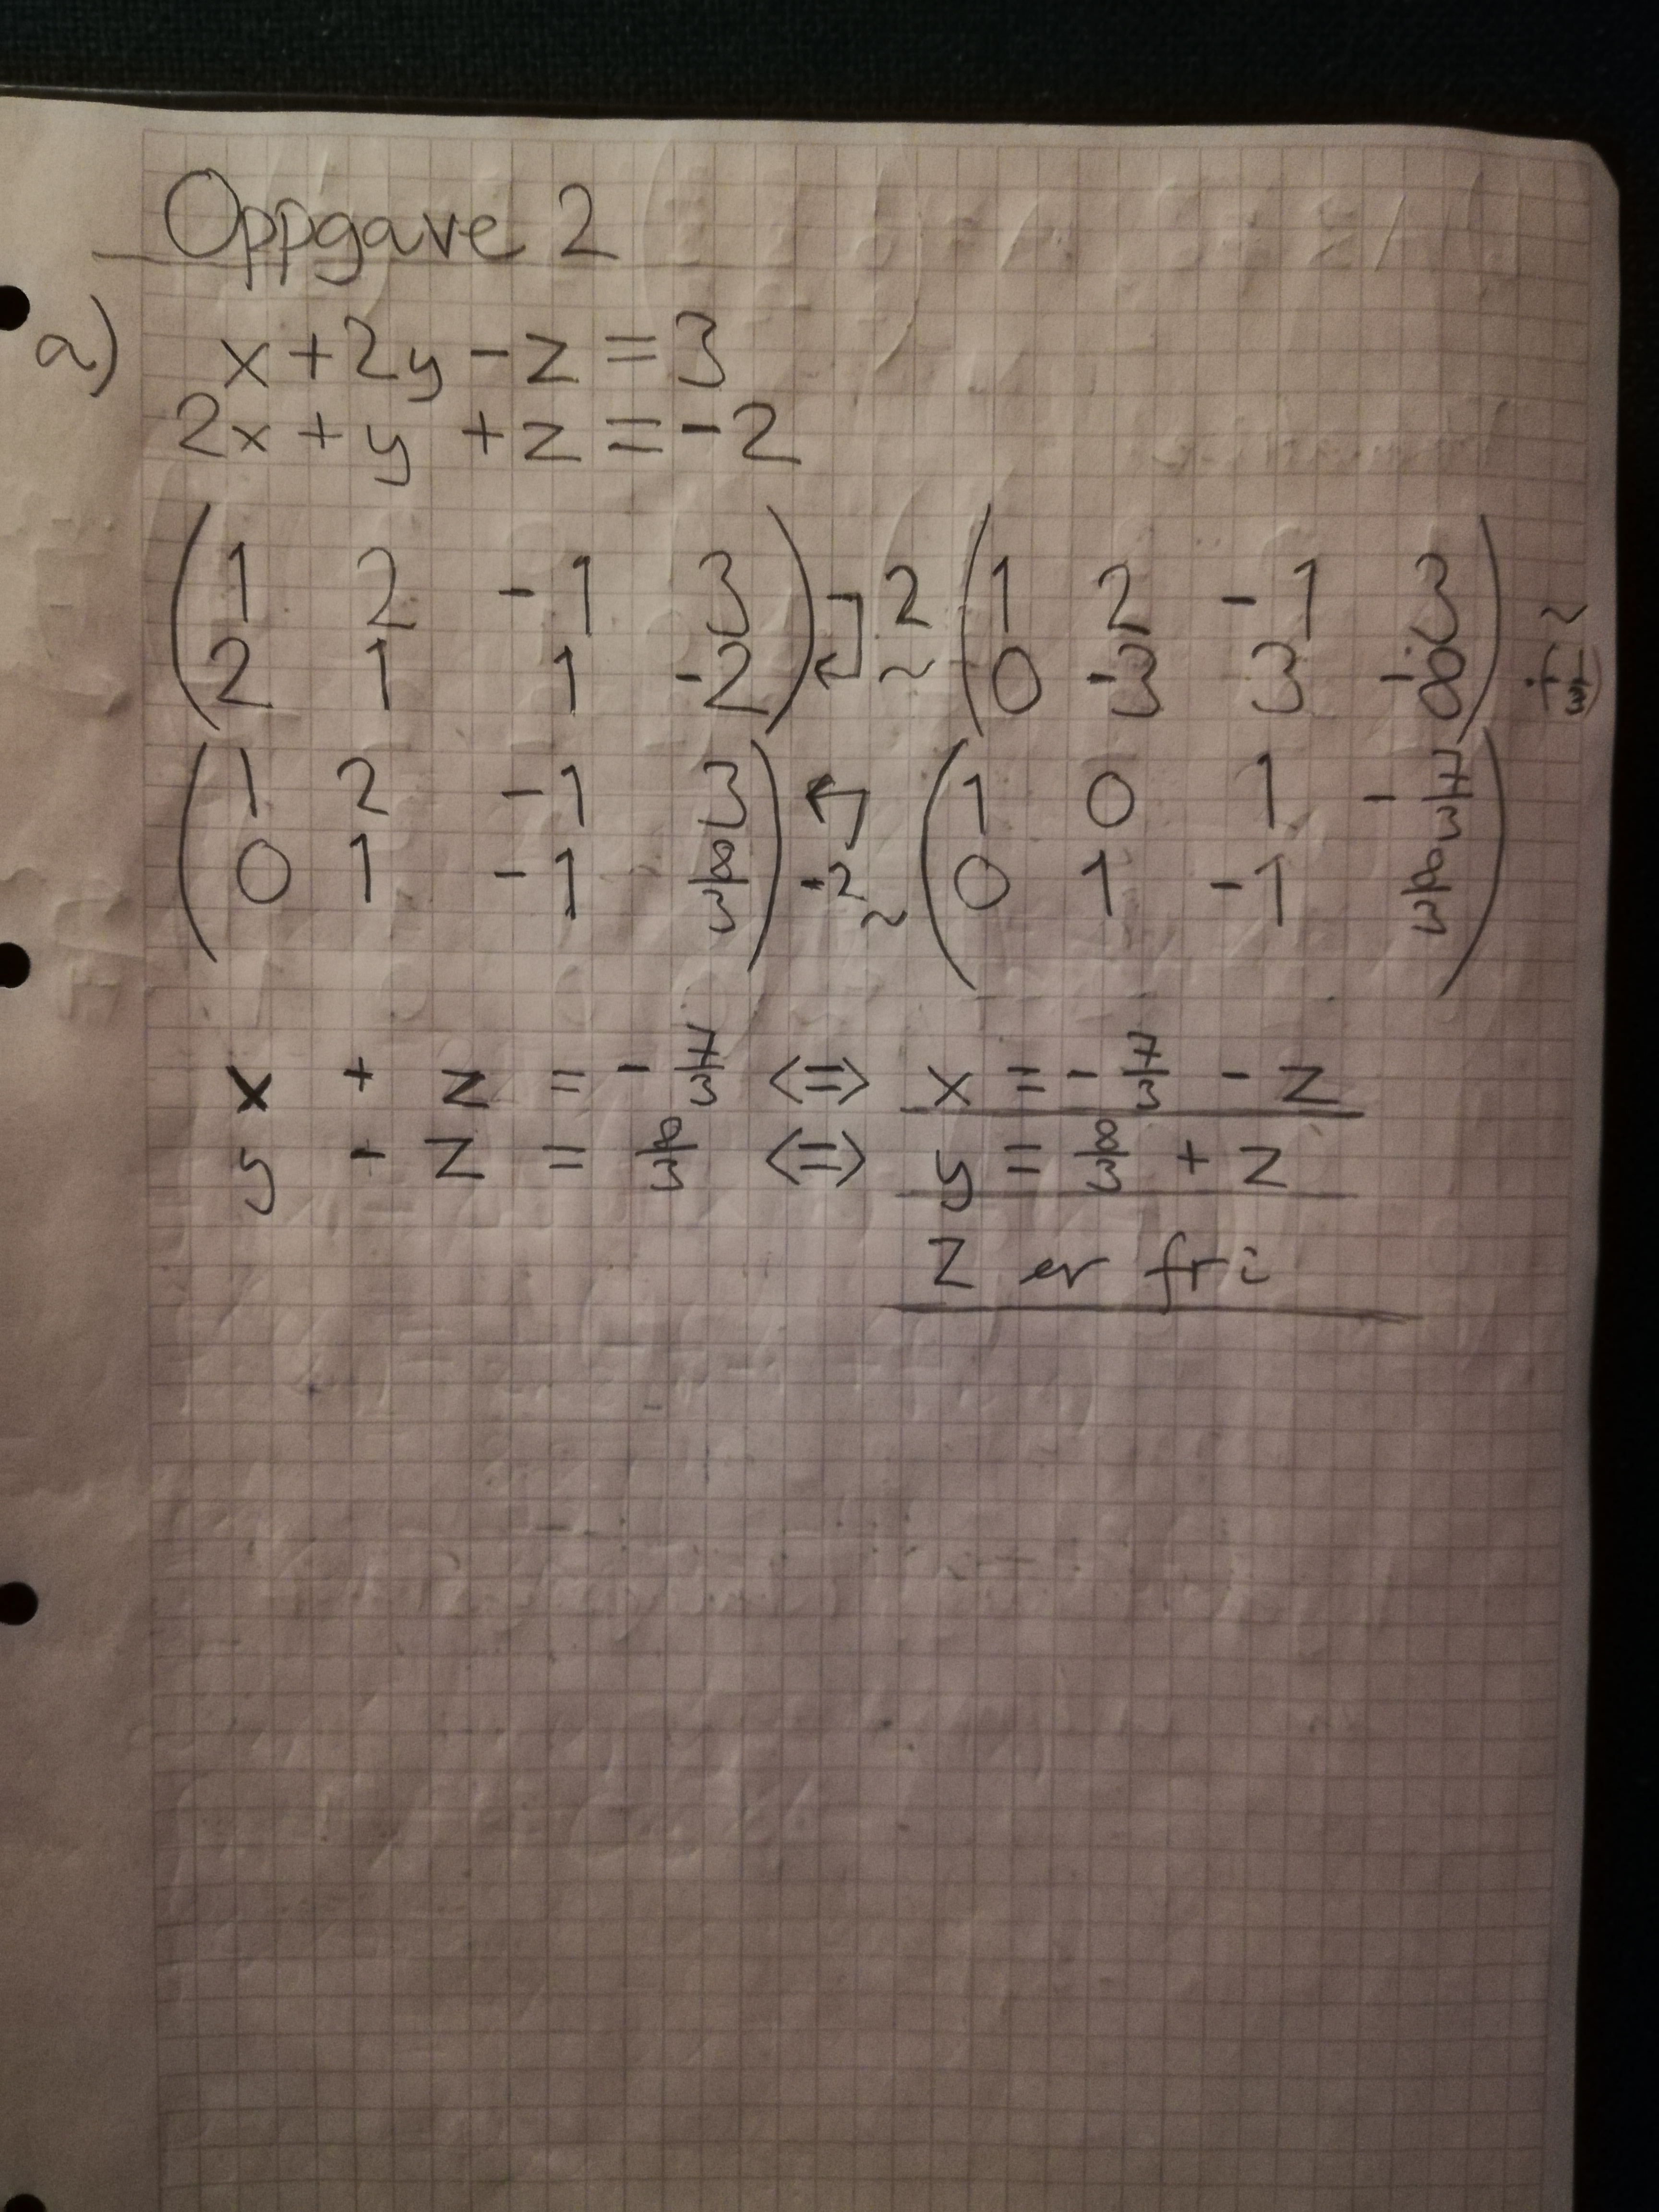 Oppgave 2
a) x + 2y - z = 3
2x + y + z = -2
( 1 2 -1 3 ) -2 ( 1 2 -1 3 ) ~
( 2 1 1 -2 ) ~ ( 0 -3 3 -8 )
( 1 2 -1 3 ) ( 1 0 1 -7/3 )
( 0 1 -1 8/3 ) -2 ~ ( 0 1 -1 8/3 )
x + z = -7/3 <=> x = -7/3 - z
y - z = 8/3 <=> y = 8/3 + z
z er fri